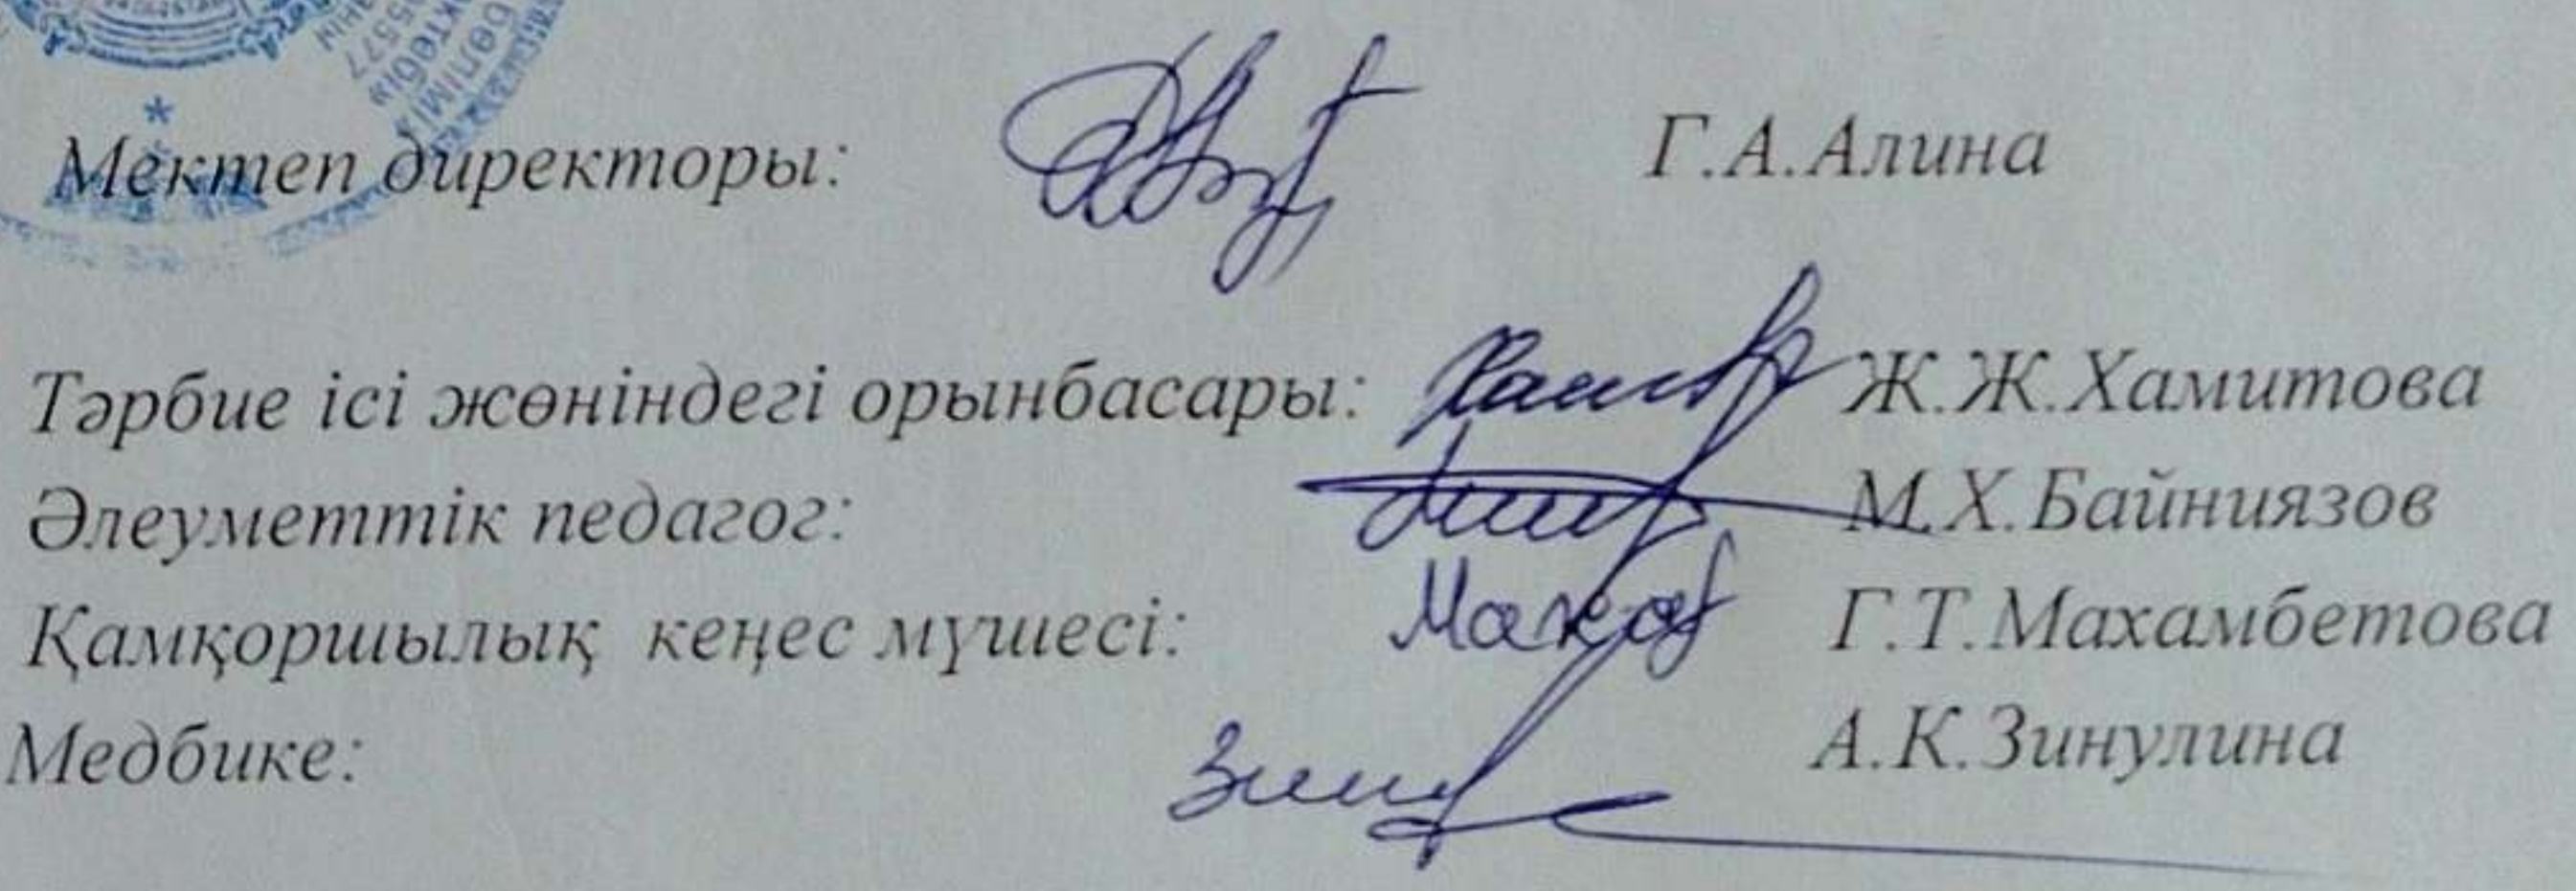 бөлімі
ктебі»
5577
Мектеп директоры: Г.А.Алина
Тәрбие ісі жөніндегі орынбасары: Ж.Ж.Хамитова
Әлеуметтік педагог: М.Х.Байниязов
Қамқоршылық кеңес мүшесі: Г.Т.Махамбетова
Медбике: А.К.Зинулина